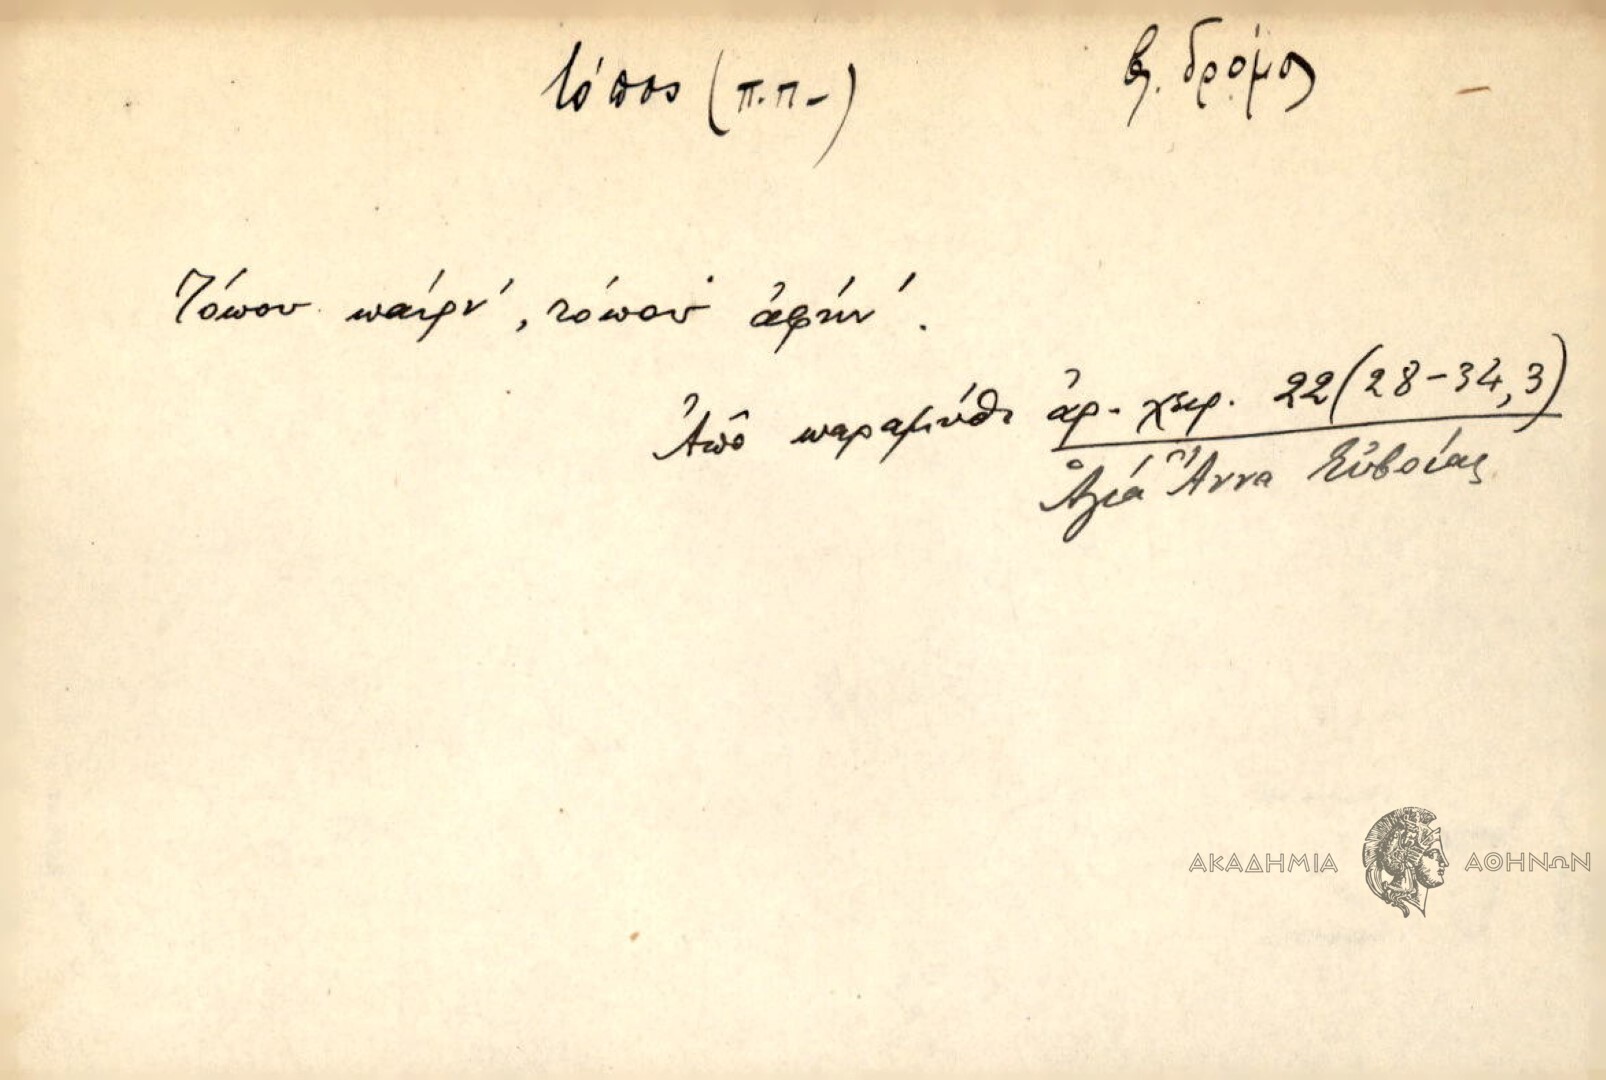 τόπος (π.π-)
βλ. δρόμος
Τόπου παίρν', τόπου ἀφήν'.
Ἀπὸ παραμύθι ἀρ. χειρ. 22(28-34,3)
Ἁγιά Ἄννα Εὐβοίας
ΑΚΑΔΗΜΙΑ ΑΘΗΝΩΝ